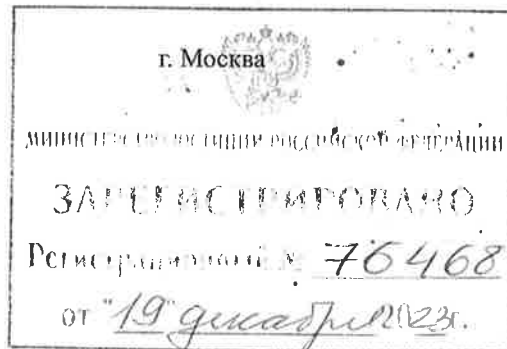 г. Москва
МИНИСТЕРСТВО ЮСТИЦИИ РОССИЙСКОЙ ФЕДЕРАЦИИ
ЗАРЕГИСТРИРОВАНО
Регистрационный № 76468
от "19" декабря 2023г.